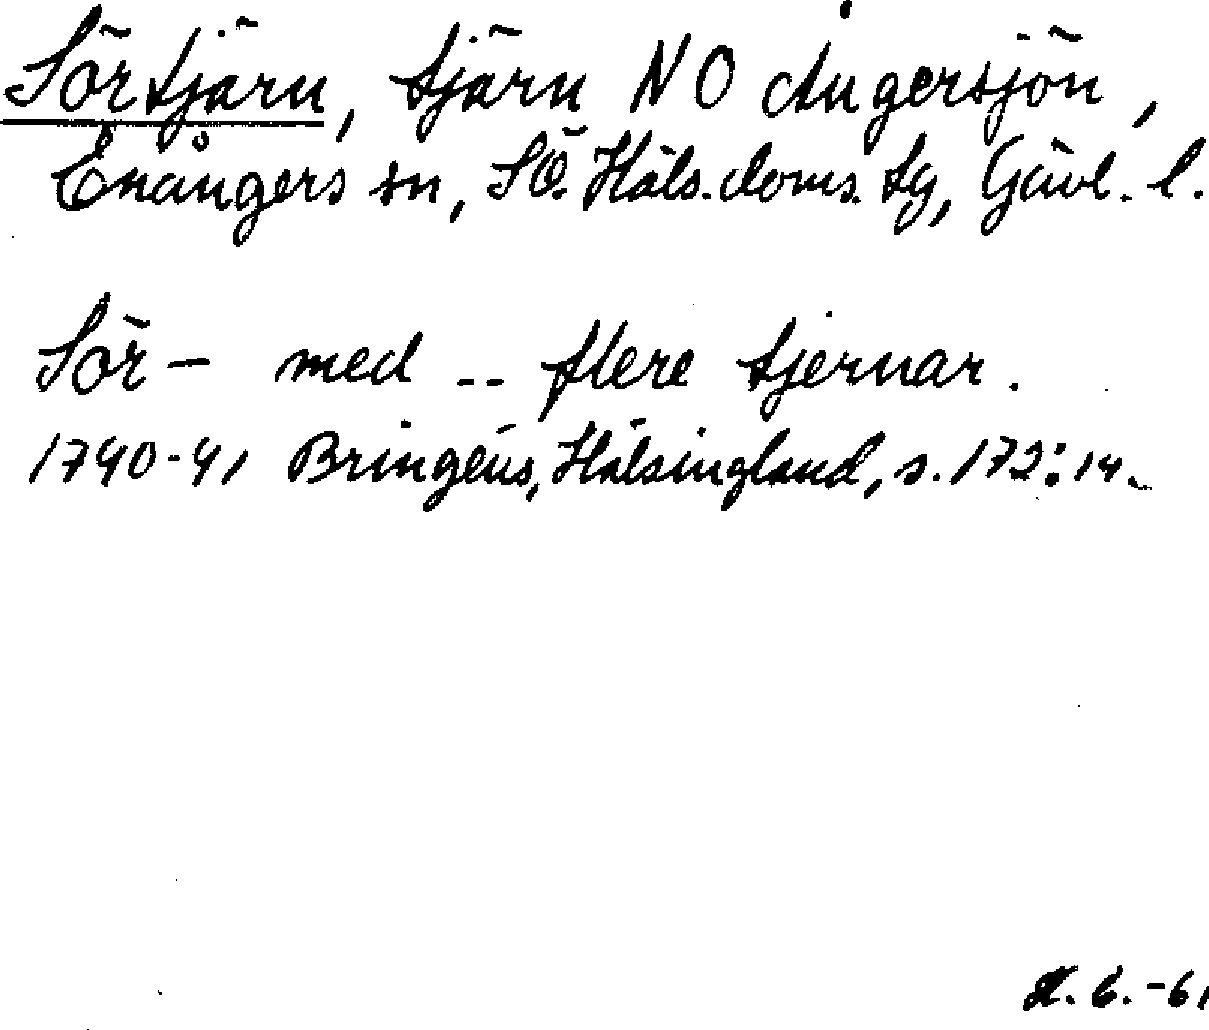 Sörtjärn, tjärn NO Ångersjön,
Enångers sn, SÖ. Häls. doms. tg, Gävl. l.
Sör- med -- flere tjernar.
1740-41 Bringéus, Hälsingland, s. 172:14.
H. G. -61